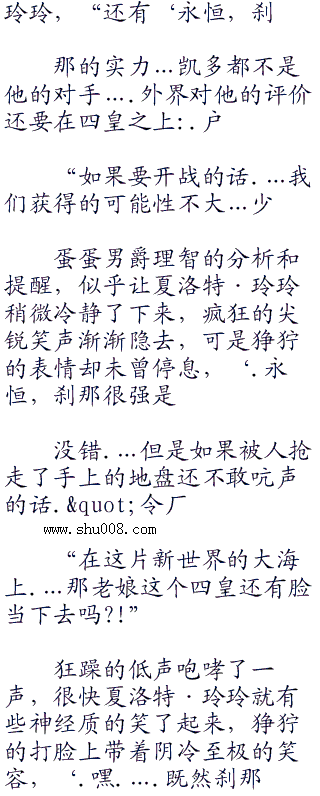 玲玲，“还有‘永恒，刹
那的实力...凯多都不是
他的对手....外界对他的评价
还要在四皇之上:.户
“如果要开战的话....我
们获得的可能性不大...少
蛋蛋男爵理智的分析和
提醒，似乎让夏洛特·玲玲
稍微冷静了下来，疯狂的尖
锐笑声渐渐隐去，可是狰狞
的表情却未曾停息，‘.永
恒，刹那很强是
没错....但是如果被人抢
走了手上的地盘还不敢吭声
的话.&quot;令厂
www.shu008.com
“在这片新世界的大海
上....那老娘这个四皇还有脸
当下去吗?!”
狂躁的低声咆哮了一
声，很快夏洛特·玲玲就有
些神经质的笑了起来，狰狞
的打脸上带着阴冷至极的笑
容，‘.嘿.....既然刹那